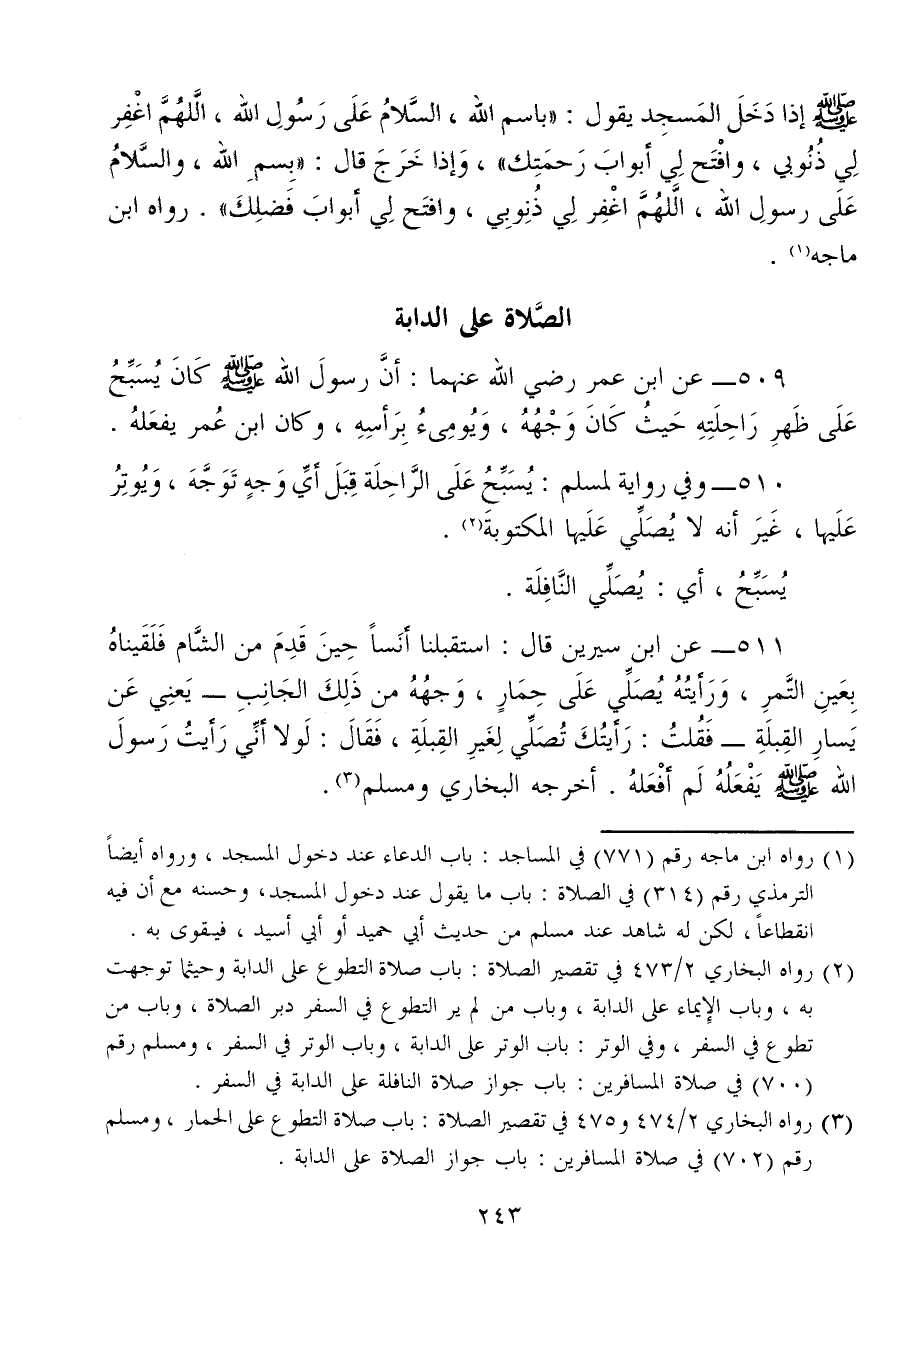 ﷺ إذا دَخَلَ المَسجِد يقول : «باسم الله ، السَّلامُ عَلَى رَسُولِ الله ، الَّلهُمَّ اغْفِر
لِي ذُنُوبي ، وافْتَح لِي أبوابَ رَحمَتِك» ، وَإذا خَرَجَ قال : «بِسم ِ الله ، والسَّلامُ
عَلَى رسولِ الله ، الَّلهُمَّ اغْفِر لِي ذُنِوبِي ، وافتَح لِي أبوابَ فَضلِكَ» . رواه ابن
ماجه(١) .
الصَّلاة على الدابة
٥٠٩ــ عن ابن عمر رضي الله عنهما : أنَّ رسولَ الله ﷺ كَانَ يُسَبِّحُ
عَلَى ظَهرِ رَاحِلَتِهِ حَيثُ كَانَ وَجْهُهُ ، وَيُومِىءُ بِرَأسِهِ ، وكان ابن عُمر يفعَلهُ .
٥١٠ــ وفي رواية لمسلم : يُسَبِّحُ عَلَى الرَّاحِلَة قِبَلَ أيِّ وَجهٍ تَوَجَّهَ ، وَيُوتِرُ
عَلَيها ، غَيرَ أنه لا يُصَلِّي عَلَيها المكتوبةَ(٢) .
يُسَبِّحُ ، أي : يُصَلِّي النَّافِلَة .
٥١١ــ عن ابن سيرين قال : استقبلنا أنَساً حِينَ قَدِمَ من الشَّام فَلَقَيناهُ
بِعَينِ التَّمرِ ، وَرَأيتُهُ يُصَلِّي عَلَى حِمَارٍ ، وَجهُهُ من ذَلِكَ الجَانِبِ ــ يَعنِي عَن
يَسارِ القِبلَةِ ــ فَقُلتُ : رَأيتُكَ تُصَلِّي لِغَيرِ القِبلَةِ ، فَقَالَ : لَولا أنِّي رَأيتُ رَسولَ
الله ﷺ يَفْعَلُهُ لَم أفْعَلهُ . أخرجه البخاري ومسلم(٣).
(١) رواه ابن ماجه رقم (٧٧١) في المساجد : باب الدعاء عند دخول المسجد ، ورواه أيضاً
الترمذي رقم (٣١٤) في الصلاة : باب ما يقول عند دخول المسجد، وحسنه مع أن فيه
انقطاعاً ، لكن له شاهد عند مسلم من حديث أبي حميد أو أبي أسيد ، فيقوى به .
(٢) رواه البخاري ٤٧٣/٢ في تقصير الصلاة : باب صلاة التطوع على الدابة وحيثما توجهت
به ، وباب الإيماء على الدابة ، وباب من لم ير التطوع في السفر دبر الصلاة ، وباب من
تطوع في السفر ، وفي الوتر : باب الوتر على الدابة ، وباب الوتر في السفر ، ومسلم رقم
(٧٠٠) في صلاة المسافرين : باب جواز صلاة النافلة على الدابة في السفر .
(٣) رواه البخاري ٤٧٤/٢ و٤٧٥ في تقصير الصلاة : باب صلاة التطوع على الحمار ، ومسلم
رقم (٧٠٢) في صلاة المسافرين : باب جواز الصلاة على الدابة .
٢٤٣